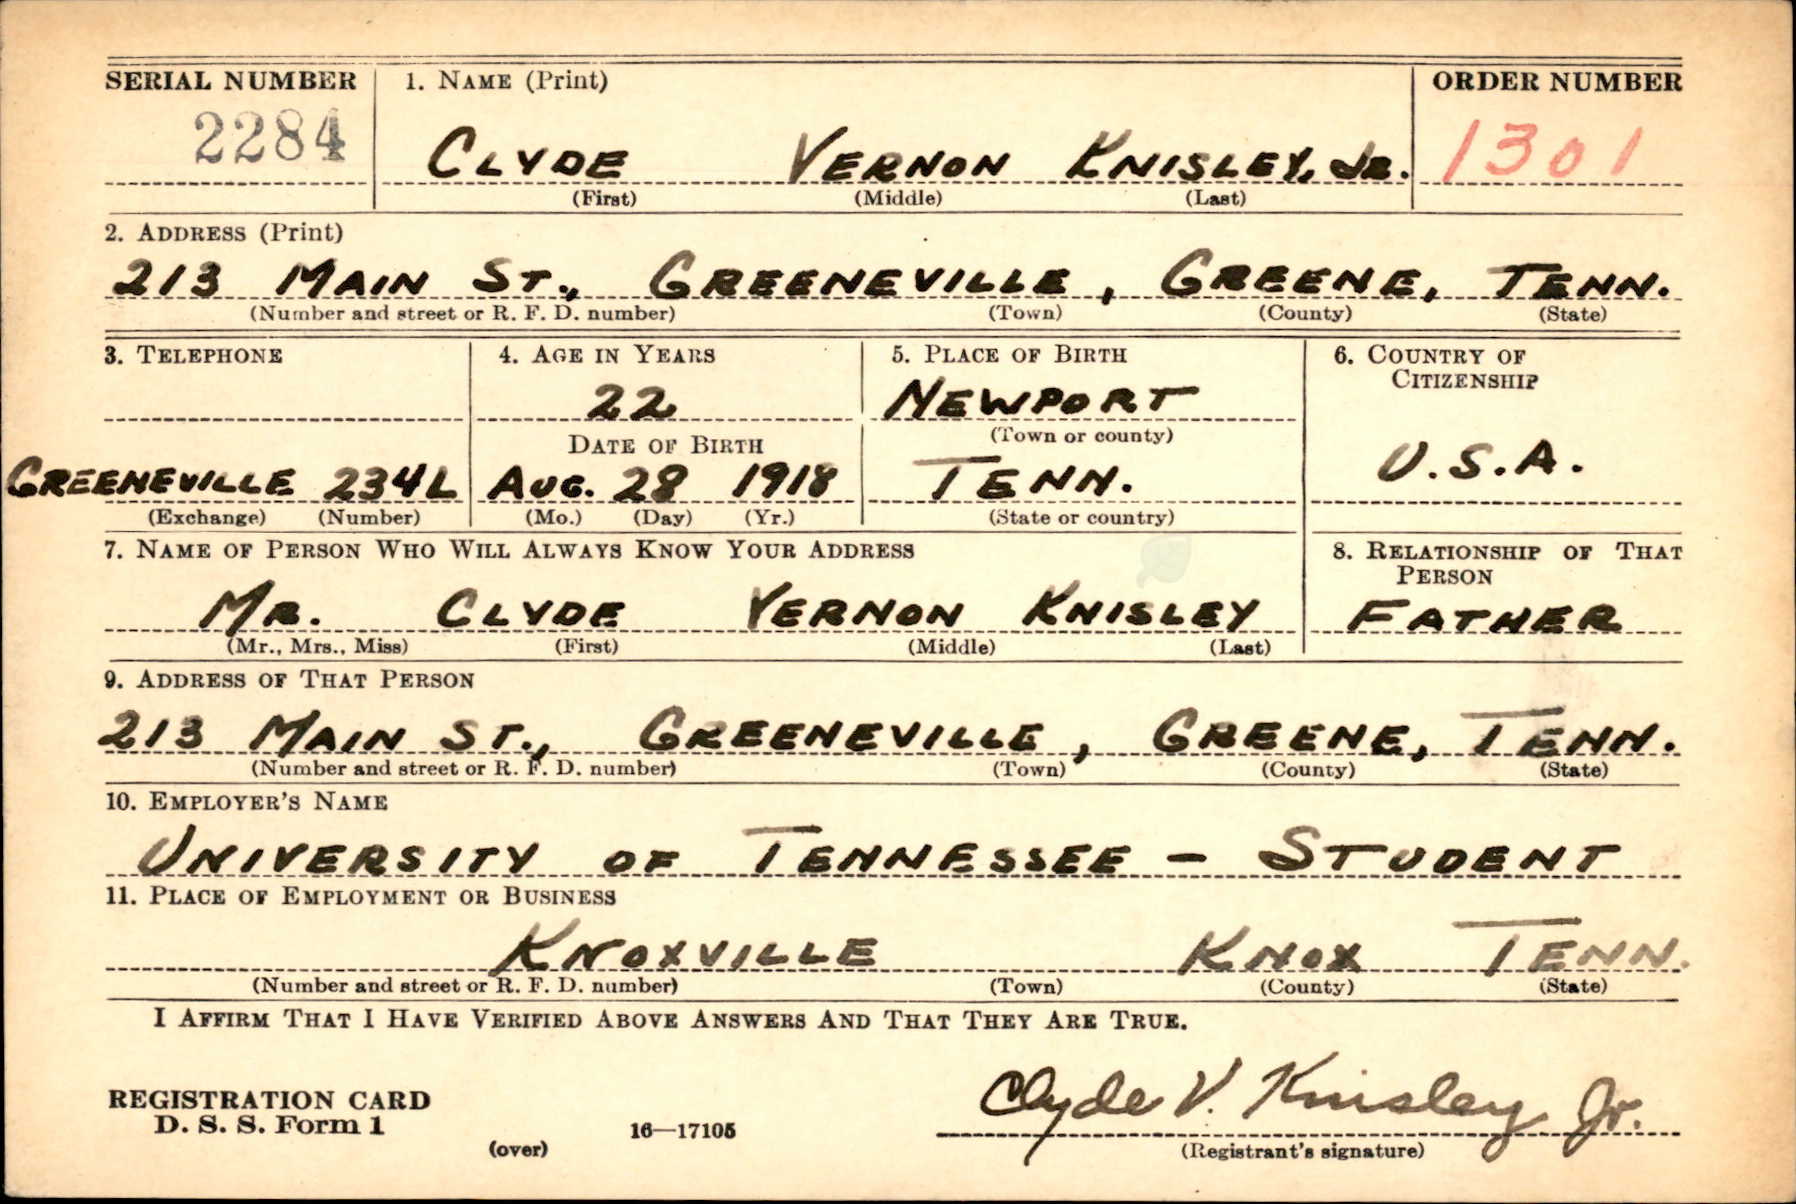 SERIAL NUMBER 1. NAME (Print) ORDER NUMBER
2284 CLYDE VERNON KNISLEY, JR. 1301
(First) (Middle) (Last)
2. ADDRESS (Print)
213 MAIN ST., GREENEVILLE, GREENE, TENN.
(Number and street or R. F. D. number) (Town) (County) (State)
3. TELEPHONE 4. AGE IN YEARS 5. PLACE OF BIRTH 6. COUNTRY OF
CITIZENSHIP
22 NEWPORT
DATE OF BIRTH (Town or county)
GREENEVILLE 234L AUG. 28 1918 TENN. U.S.A.
(Exchange) (Number) (Mo.) (Day) (Yr.) (State or country)
7. NAME OF PERSON WHO WILL ALWAYS KNOW YOUR ADDRESS 8. RELATIONSHIP OF THAT
PERSON
MR. CLYDE VERNON KNISLEY FATHER
(Mr., Mrs., Miss) (First) (Middle) (Last)
9. ADDRESS OF THAT PERSON
213 MAIN ST., GREENEVILLE, GREENE, TENN.
(Number and street or R. F. D. number) (Town) (County) (State)
10. EMPLOYER'S NAME
UNIVERSITY OF TENNESSEE - STUDENT
11. PLACE OF EMPLOYMENT OR BUSINESS
KNOXVILLE KNOX TENN.
(Number and street or R. F. D. number) (Town) (County) (State)
I AFFIRM THAT I HAVE VERIFIED ABOVE ANSWERS AND THAT THEY ARE TRUE.
Clyde V. Knisley Jr.
REGISTRATION CARD
D. S. S. Form 1
(over) 16—17105 (Registrant's signature)